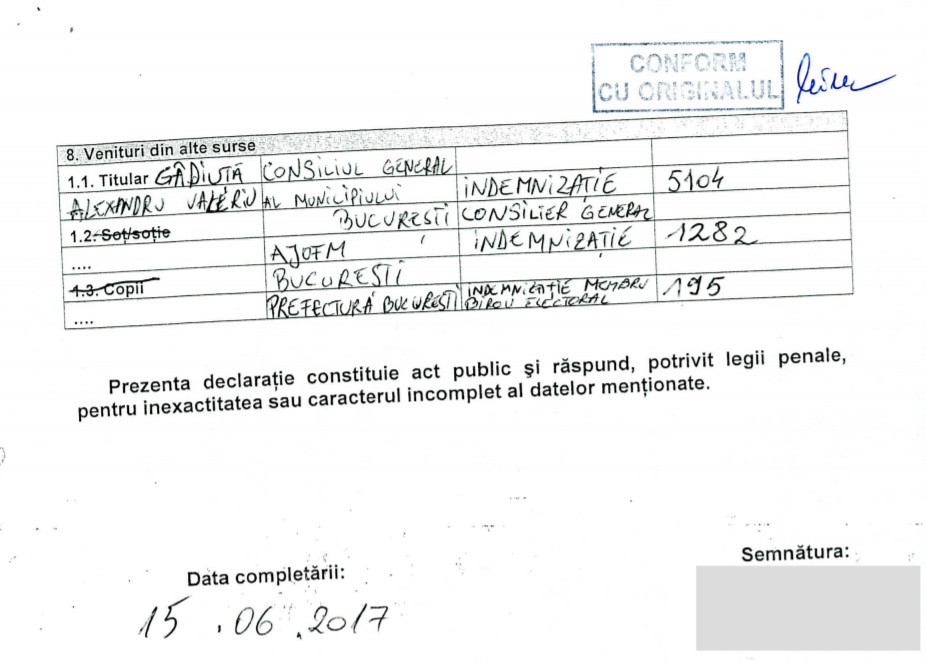 CONFORM
CU ORIGINALUL
8. Venituri din alte surse
1.1. Titular GÂDIUȚĂ CONSILIUL GENERAL
ALEXANDRU VALERIU AL MUNICIPIULUI INDEMNIZAȚIE 5104
1.2. Soț/soție BUCUREȘTI CONSILIER GENERAL
.... AJOFM INDEMNIZAȚIE 1282
1.3. Copii BUCUREȘTI
.... PREFECTURA BUCUREȘTI INDEMNIZAȚIE MEMBRU BIROU ELECTORAL 195
Prezenta declarație constituie act public şi răspund, potrivit legii penale,
pentru inexactitatea sau caracterul incomplet al datelor menționate.
Data completării:
Semnătura:
15.06.2017